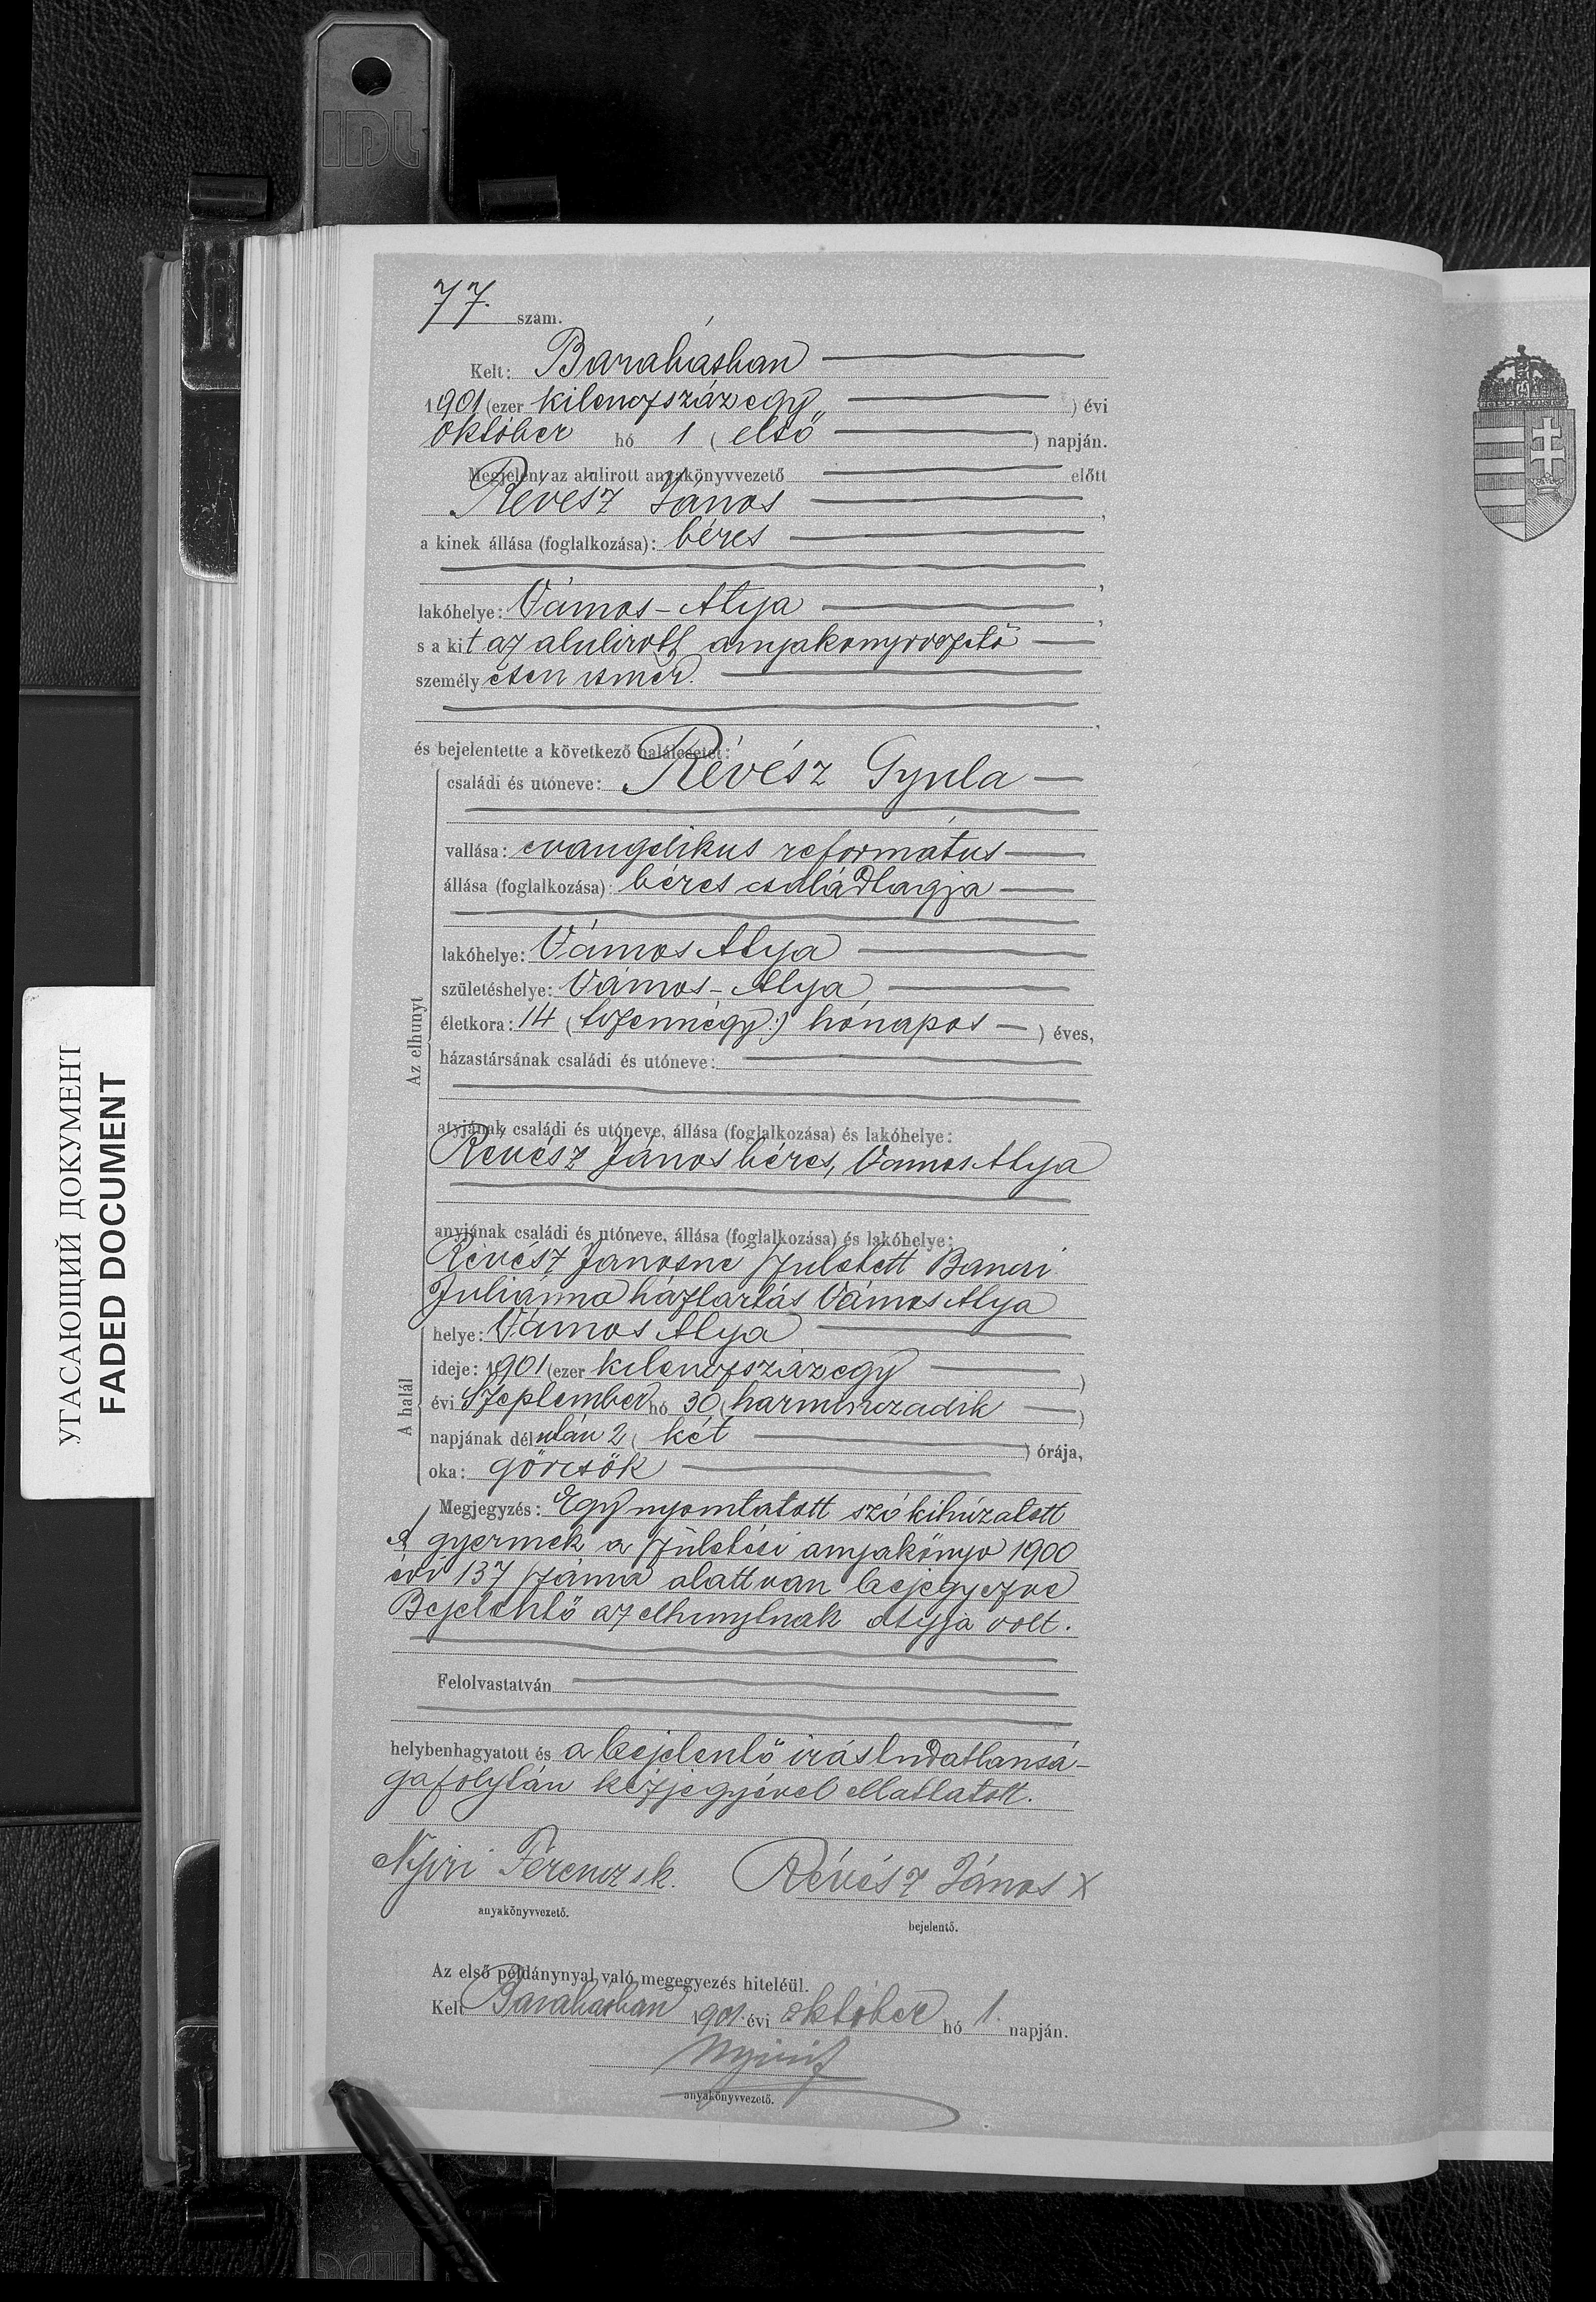 IDL
77. szám.
Kelt: Barabásban
1901 (ezer kilenczszázegy ) évi
október hó 1 ( első ) napján.
Megjelent az alulirott anyakönyvvezető előtt
Révész János ,
a kinek állása (foglalkozása): béres
,
lakóhelye: Vámos-Atya ,
s a kit az alulirott anyakönyvvezető
személyesen ismer.
,
és bejelentette a következő halálesetet:
Az elhunyt
családi és utóneve: Révész Gyula
vallása: evangelikus református
állása (foglalkozása): béres családtagja
lakóhelye: Vámos Atya
születéshelye: Vámos-Atya
életkora: 14 (tizennégy) hónapos ) éves,
házastársának családi és utóneve:
atyjának családi és utóneve, állása (foglalkozása) és lakóhelye:
Révész János béres, Vámos Atya
anyjának családi és utóneve, állása (foglalkozása) és lakóhelye:
Révész Jánosné született
Juliánna háztartás Vámos Atya
A halál
helye: Vámos Atya
ideje: 1901 (ezer kilenczszázegy )
évi Szeptember hó 30 (harminczadik )
napjának délután 2 ( két ) órája,
oka: görcsök
Megjegyzés: Egy nyomtatott szó kihúzatott
A gyermek a születési anyakönyv 1900
évi 137 száma alatt van bejegyezve
Bejelentő az elhunytnak atyja volt.
Felolvastatván
helybenhagyatott és a bejelentő irástudatlansá-
ga folytán kézjegyével ellattatott.
Nyiri Ferencz sk. Révész János X
anyakönyvvezető.
bejelentő.
Az első példánynyal való megegyezés hiteléül.
Kelt Barabásban 1901. évi október hó 1. napján.
Nyiri F
anyakönyvvezető.
УГАСАЮЩИЙ ДОКУМЕНТ
FADED DOCUMENT